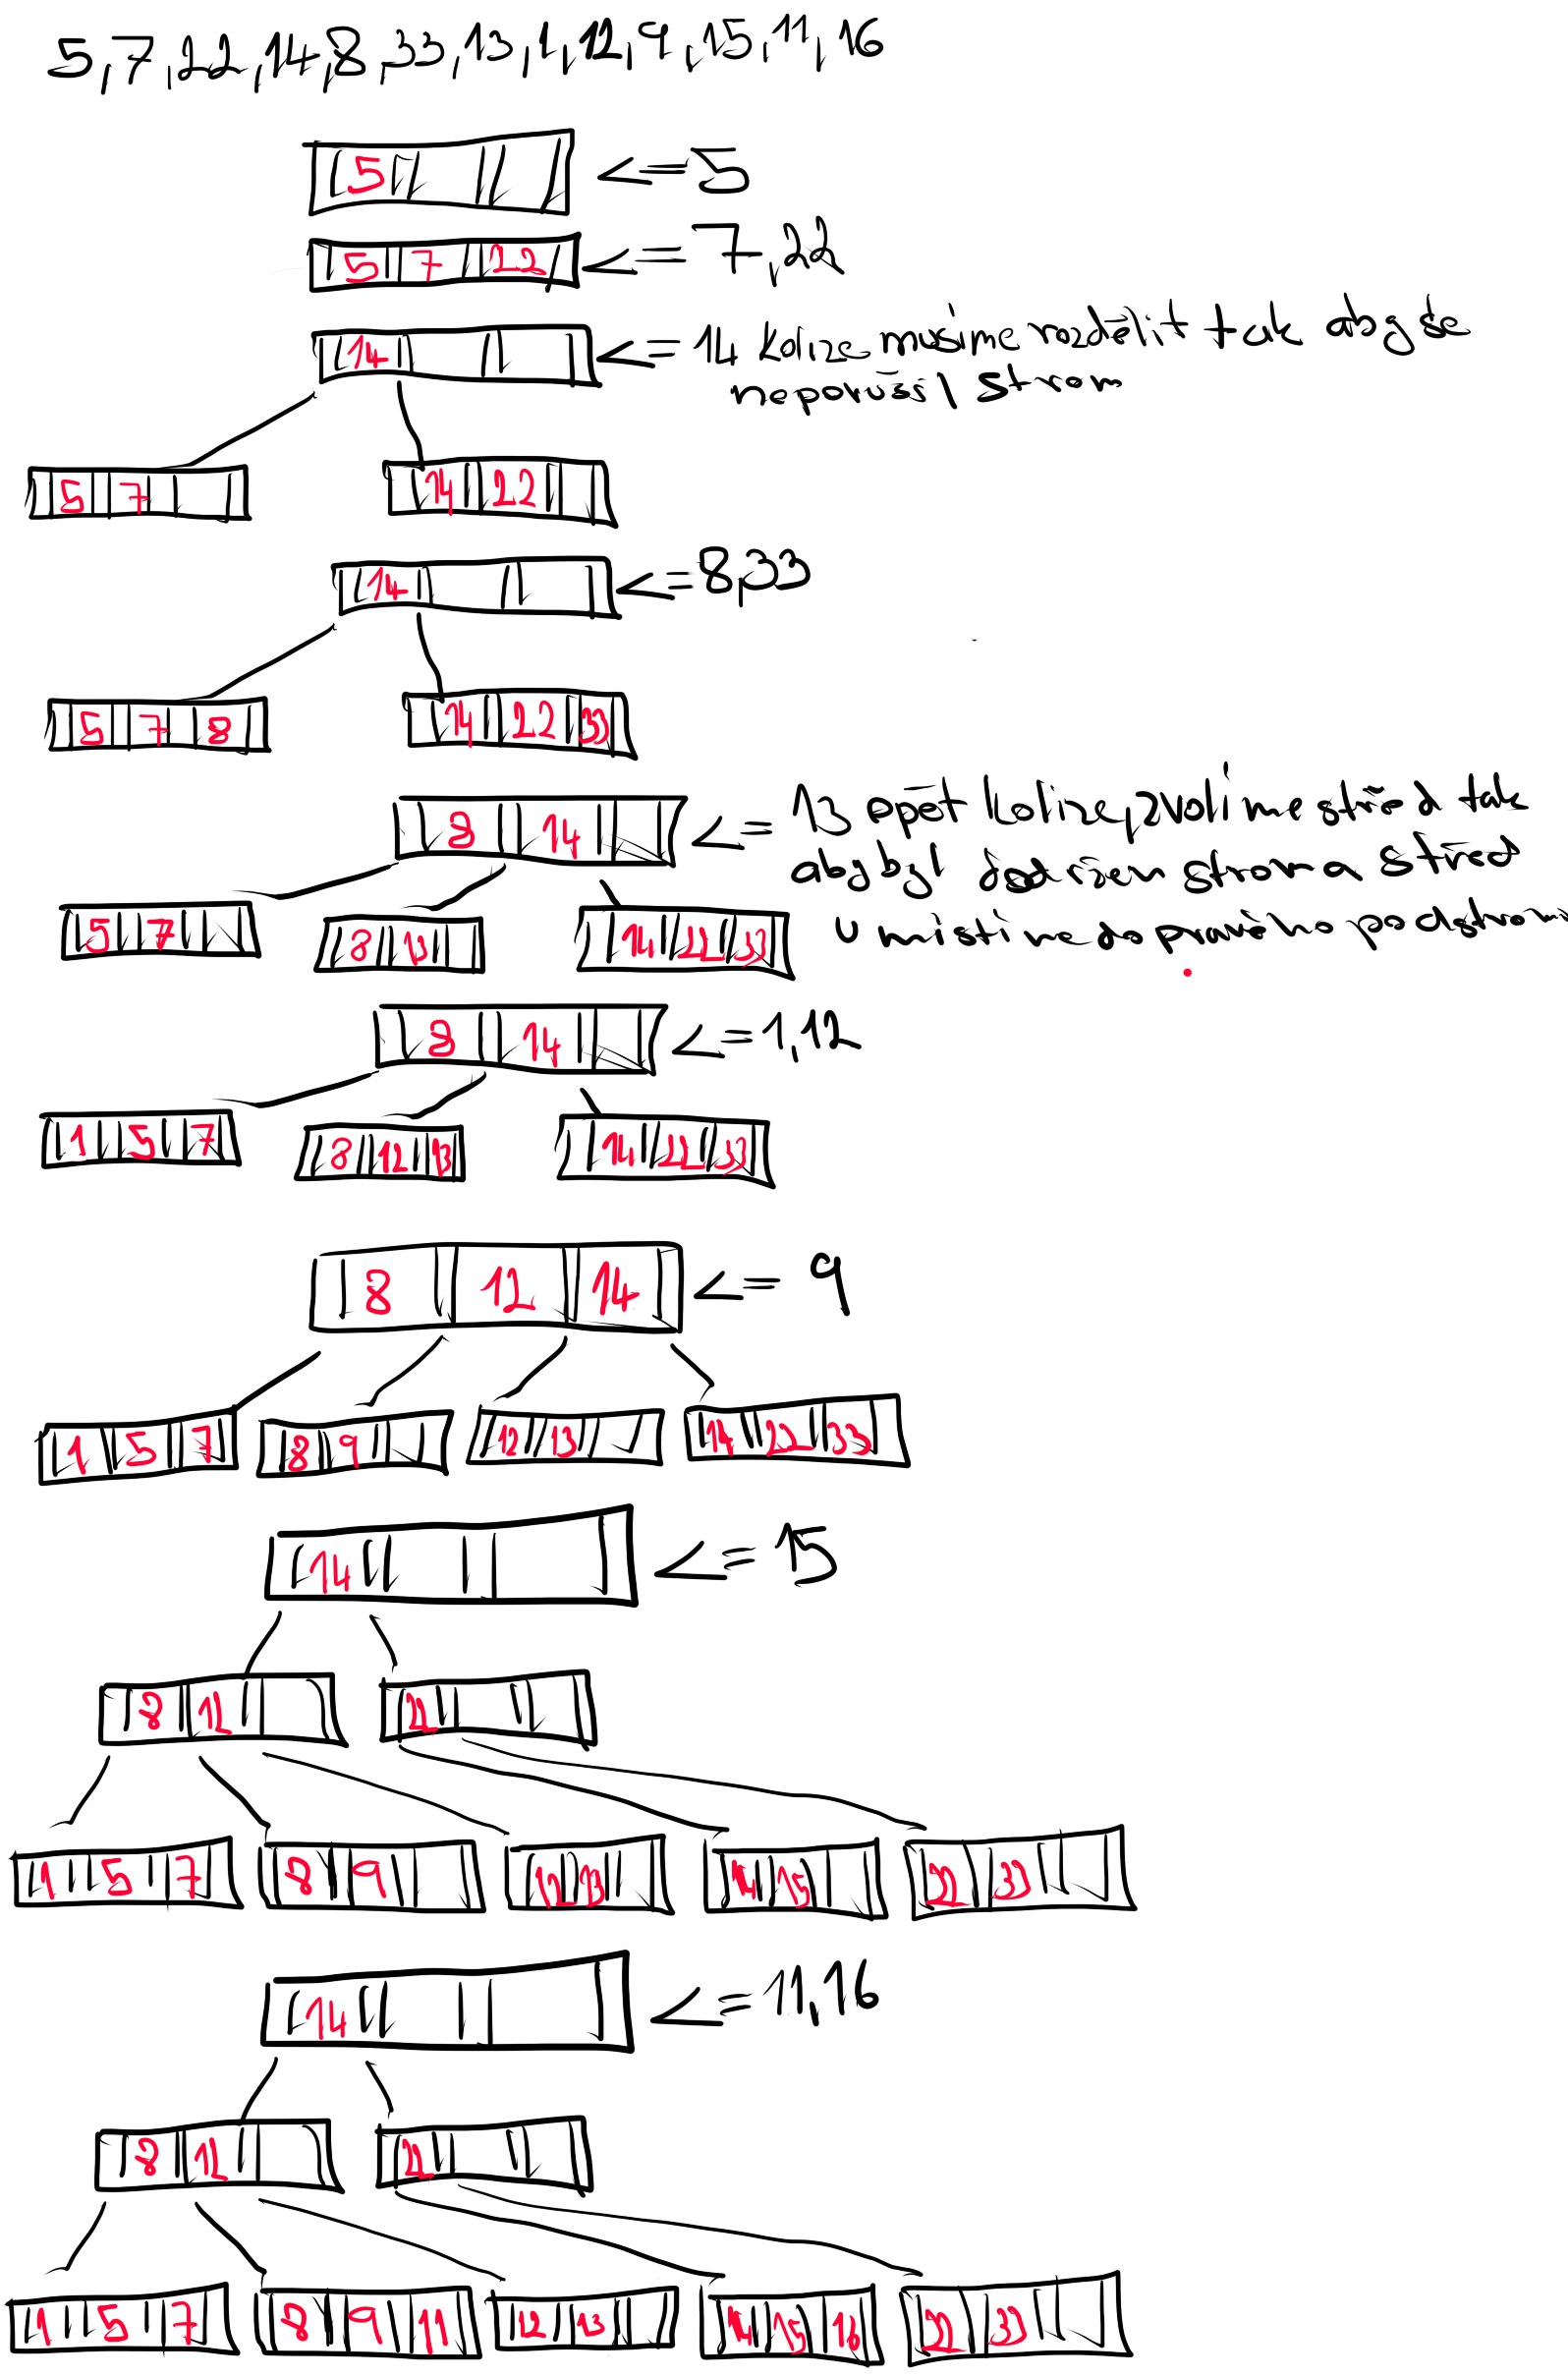 5,7,22,14,8,33,13,1,12,9,15,11,16
5 <= 5
5 7 22 <= 7,22
14 <= 14 kolize musíme rozdělit tak aby se
neporušil strom
5 7 14 22
14 <= 8,33
5 7 8 14 22 33
8 14 <= 13 opět kolize, zvolíme střed tak
aby byl strom a střed
5 7 8 13 14 22 33 umístíme do pravého podstromu
8 14 <= 1,12
1 5 7 8 12 13 14 22 33
8 12 14 <= 9
1 5 7 8 9 12 13 14 22 33
14 <= 15
8 12 22
1 5 7 8 9 12 13 14 15 22 33
14 <= 11,16
8 12 22
1 5 7 8 9 11 12 13 14 15 16 22 33